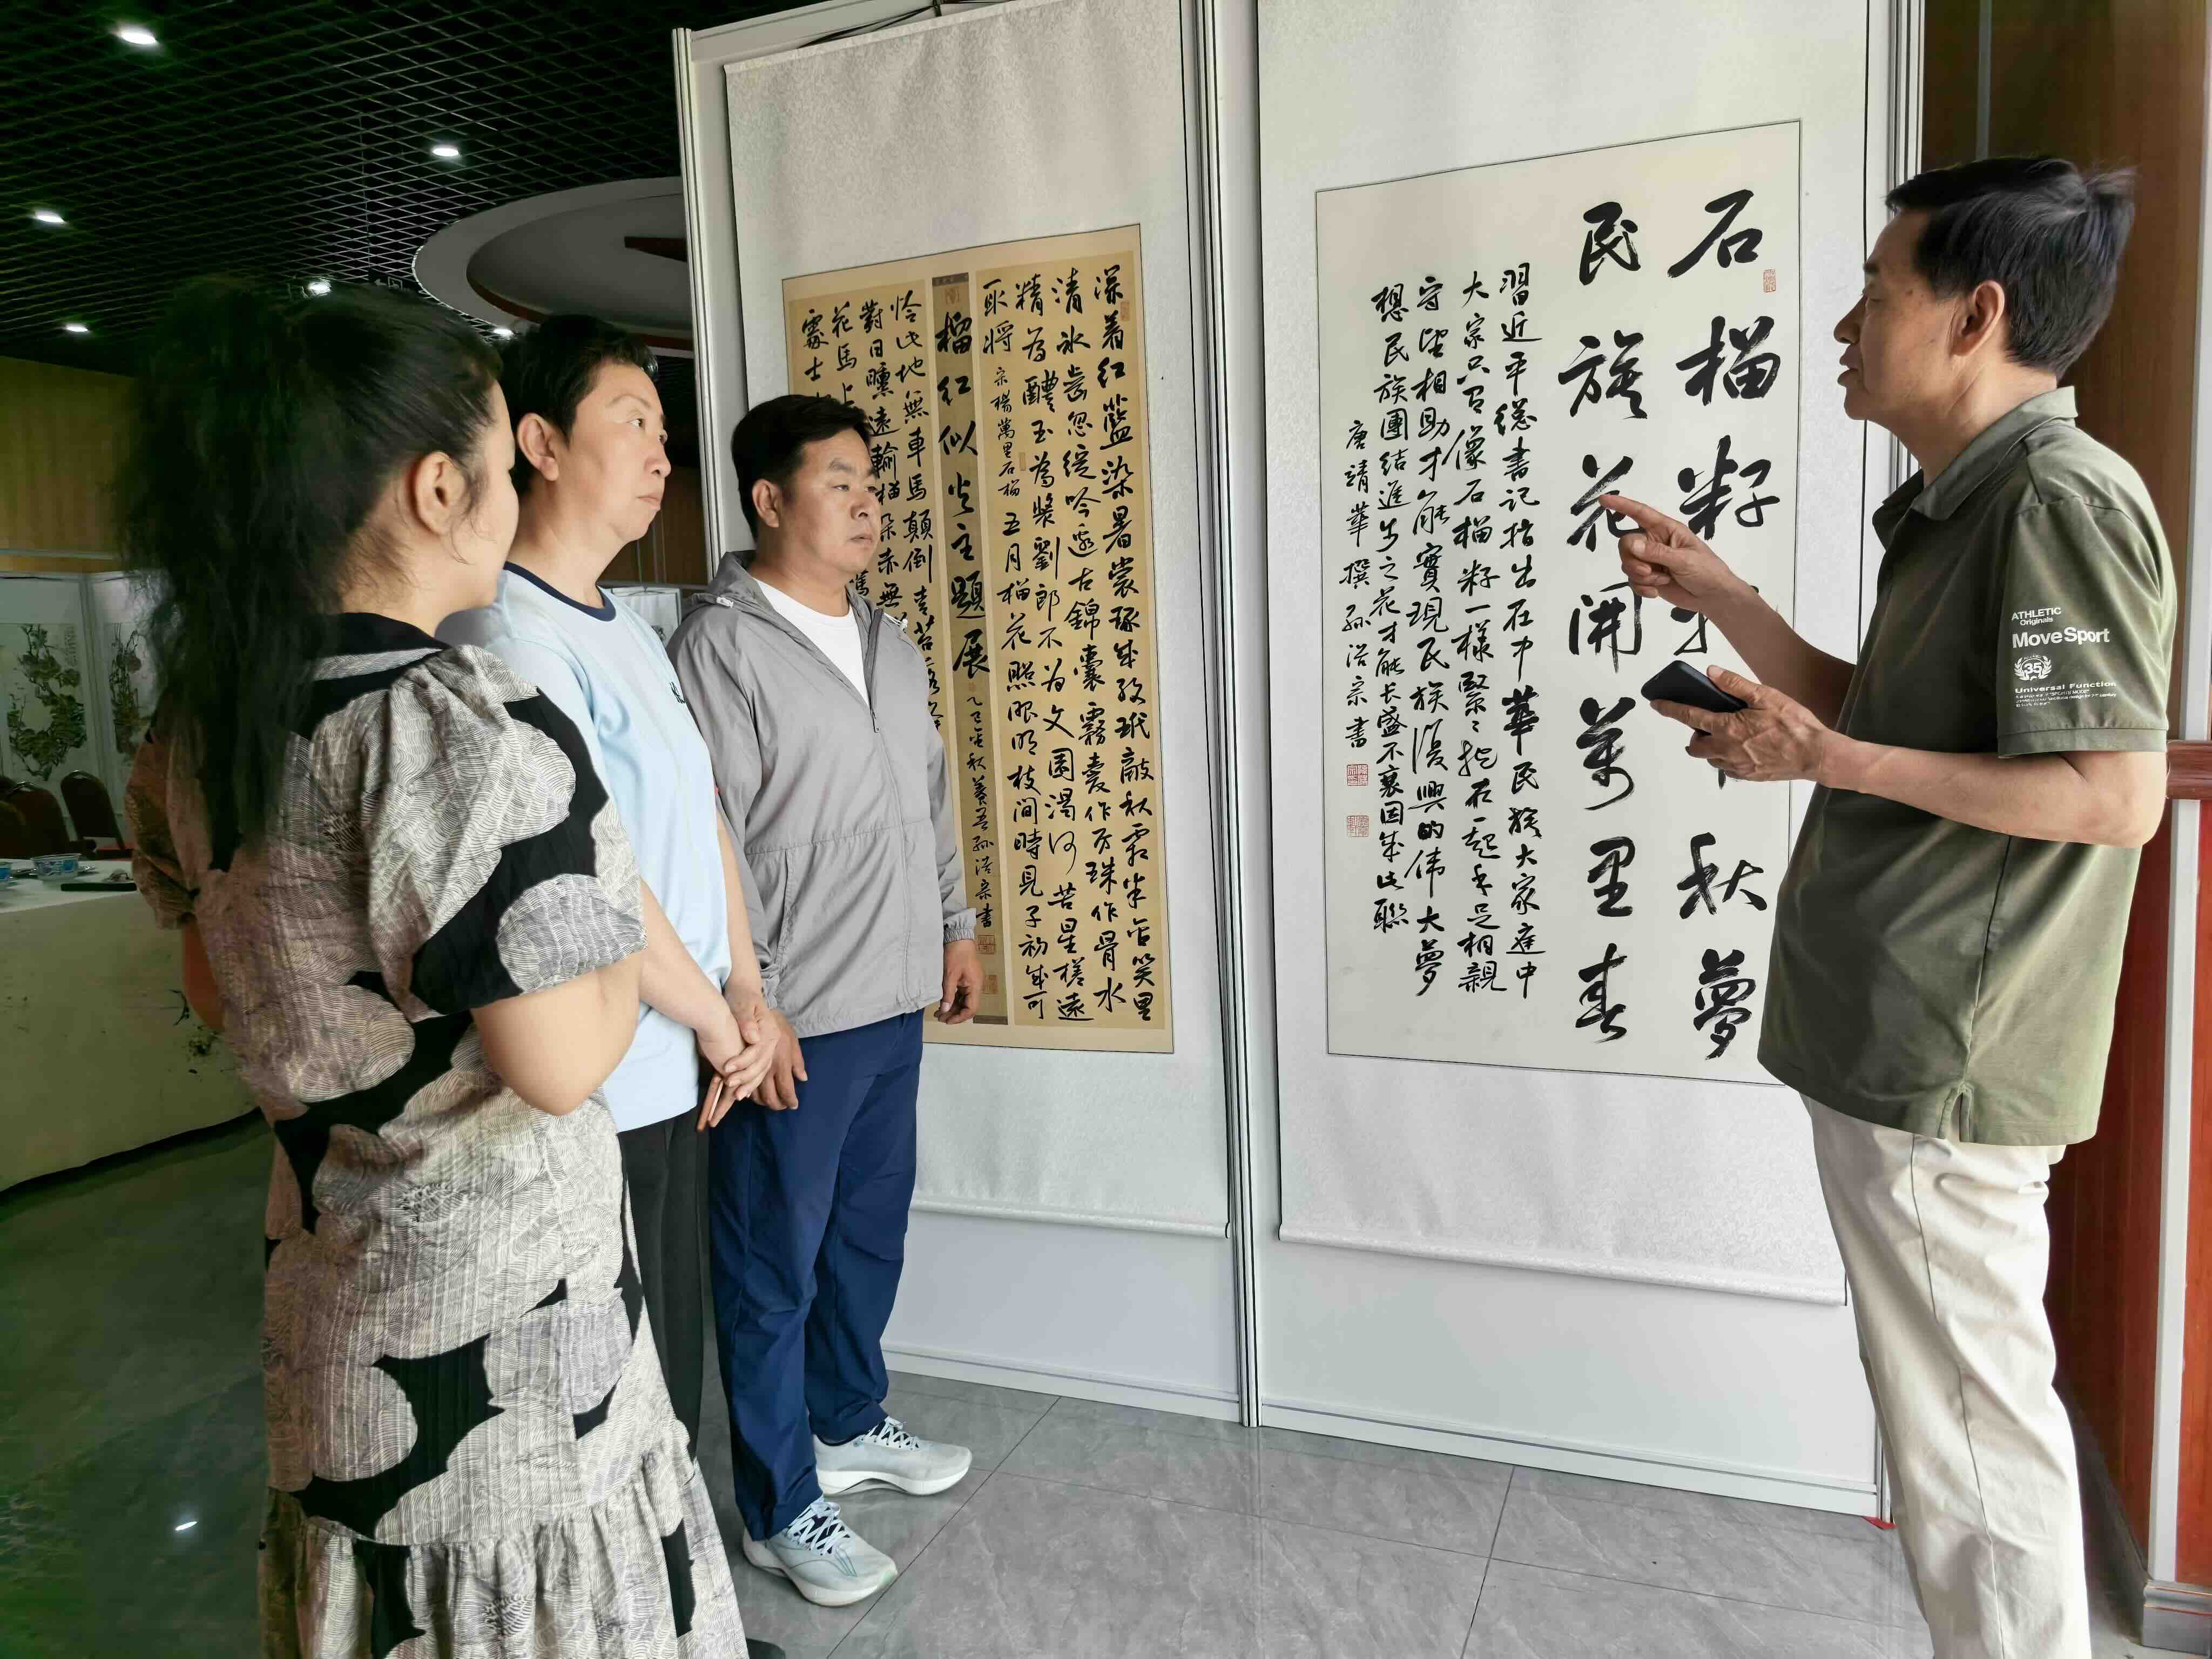 石榴籽
秋夢
民族花開萬里春
習近平總書記指出在中華民族大家庭中
大家只有像石榴籽一樣緊緊抱在一起手足相親
守望相助才能實現民族復興的伟大夢
想民族團結進步之花才能长盛不衰因成此聯
唐靖華撰孫浩宗書
深着红藍染暑裳琢成纹玳敲秋霜半含笑里
清冰齿忽绽吟边古錦囊霧縠作房珠作骨水
精為醴玉為漿劉郎不为文園渴何苦星槎遠
取将
宋楊萬里石榴
五月榴花照眼明枝间時見子初成可
榴红似火主題展
乙巳
秋
孫浩宗書
怜此地無車馬顛倒青苔落
對日
遠輸榴朵赤
花馬上
ATHLETIC
Originals
MoveSport
35
Universal Function